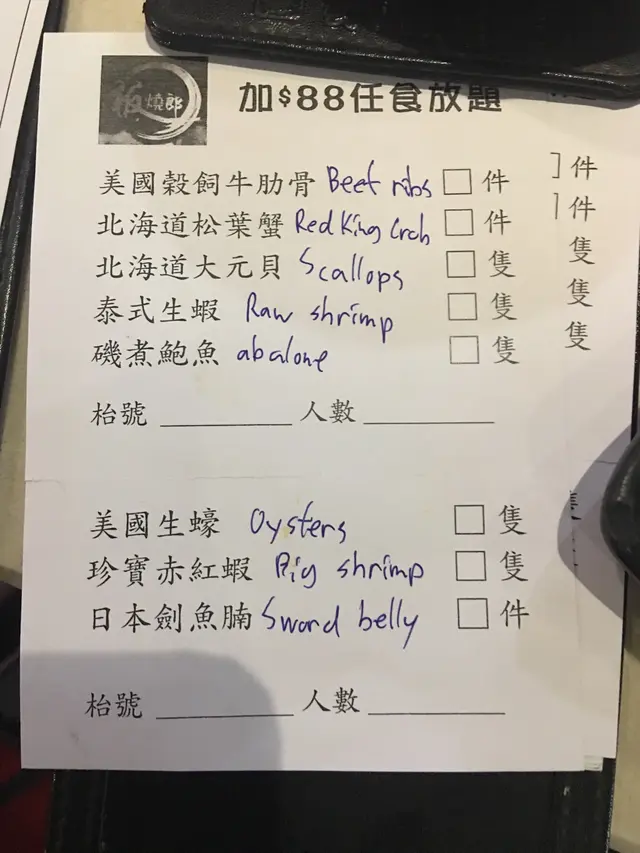 燒郎
加$88任食放題
美國穀飼牛肋骨 Beef ribs □ 件
件
北海道松葉蟹 Red King Crab □ 件
件
北海道大元貝 Scallops □ 隻
隻
泰式生蝦 Raw shrimp □ 隻
隻
磯煮鮑魚 abalone □ 隻
隻
枱號 ________ 人數 ________
美國生蠔 Oysters □ 隻
珍寶赤紅蝦 Big shrimp □ 隻
日本劍魚腩 Sword belly □ 件
枱號 ________ 人數 ________